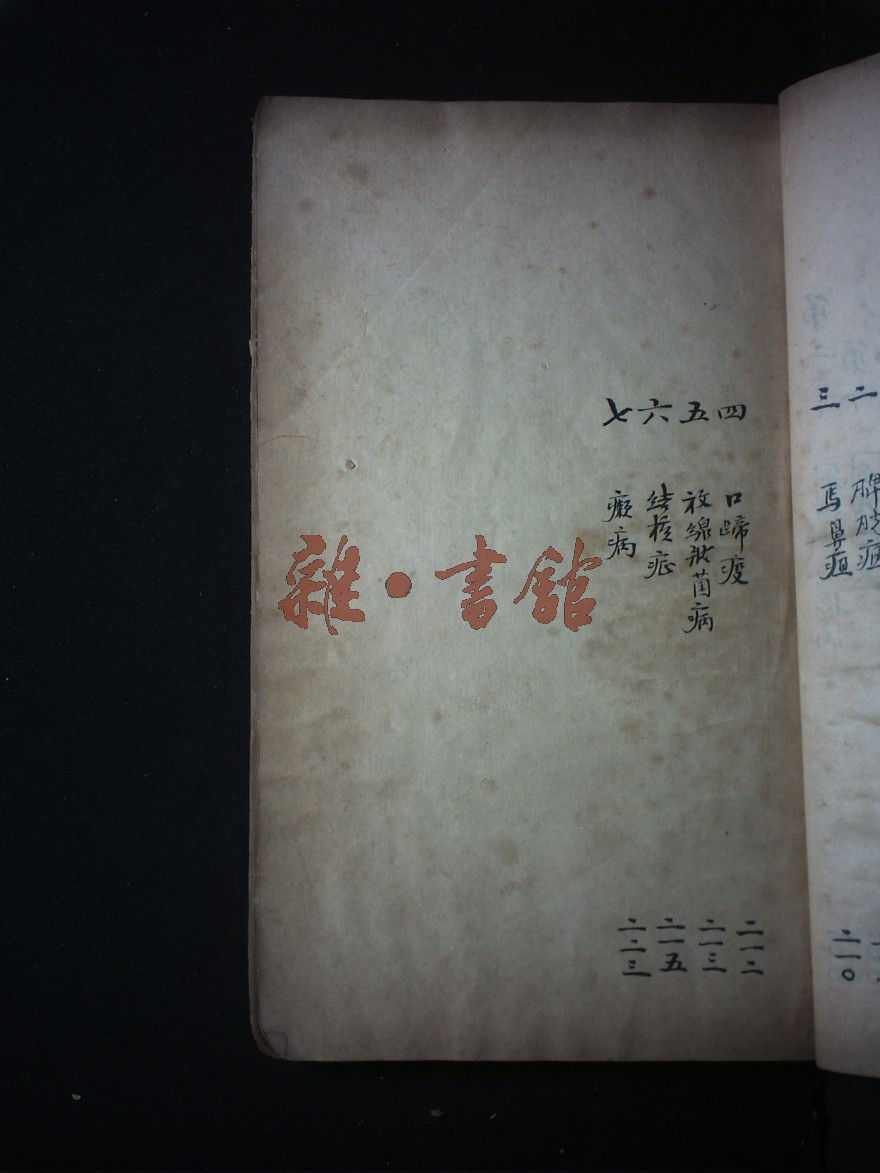 二 脾脱疽
三 馬鼻疽 二一〇
四 口蹄疫 二一二
五 放線狀菌病 二一三
六 結核症 二一五
七 癩病 二二三
雜·書館